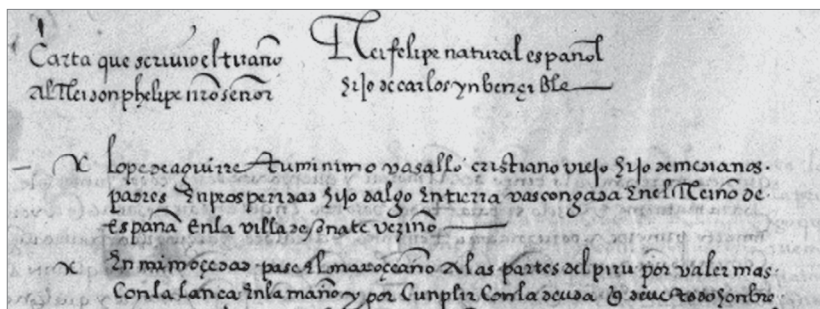 Carta que scrivio el tirano
al Rei don phelipe nro señor
Rei felipe natural español
hijo de carlos ynbencible
lope de aguirre tu minimo vasallo cristiano viejo hijo de medianos
padres En prosperidad hijo dalgo En tierra vascongada En el Reino de
españa En la villa de oñate vezino
En mi moçedad pase El mar oçeano A las partes del piru por valer mas
Con la lança En la mano y por Cunplir Con la deuda q deve todo honbre